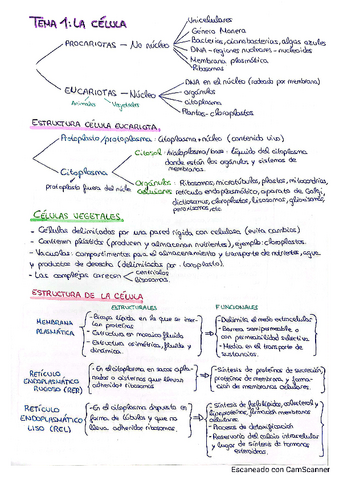 TEMA 1: LA CÉLULA
PROCARIOTAS - No núcleo
Unicelulares
Género Monera
Bacterias, cianobacterias, algas azules
DNA - regiones nucleares - nucleoides
Membrana plasmática
Ribosomas
EUCARIOTAS - Núcleo
Animales
Vegetales
DNA en el núcleo (rodeado por membrana)
orgánulos
citoplasma
Plantas - cloroplastos
ESTRUCTURA CÉLULA EUCARIOTA.
Protoplasto/protoplasma: citoplasma + núcleo (contenido vivo)
Citoplasma
protoplasto fuera del núcleo
Citosol: hialoplasma/base - líquido del citoplasma
donde están los orgánulos y sistemas de
membranas.
Orgánulos: Ribosomas, microtúbulos, plastos, mitocondrias,
celulares retículo endoplasmático, aparato de Golgi,
dictiosomas, cloroplastos, lisosomas, glioxisomas,
peroxisomas, etc
CÉLULAS VEGETALES.
- Células delimitadas por una pared rígida con celulosa (evita cambios)
- Contienen plástidos (producen y almacenan nutrientes), ejemplo: cloroplastos.
- Vacuolas: compartimentos para el almacenamiento y transporte de nutrientes, agua
y productos de desecho (delimitadas por tonoplasto).
- Las complejas carecen
centriolos
lisosomas.
ESTRUCTURA DE LA CÉLULA
ESTRUCTURALES
FUNCIONALES
MEMBRANA
PLASMÁTICA
- Bicapa lípida en la que se inter-
can proteínas
- Estructura en mosaico fluido
- Estructura asimétrica, fluida y
dinámica.
- Delimita el medio extracelular
- Barrera semipermeable o
con permeabilidad selectiva
- Media en el transporte de
sustancias.
RETÍCULO
ENDOPLASMÁTICO
RUGOSO (RER)
- En el citoplasma en sacos apla-
nados o cisternas que llevan
adheridos ribosomas
- Síntesis de proteínas de secreción,
proteínas de membrana, y forma-
ción de membranas celulares.
RETÍCULO
ENDOPLASMÁTICO
LISO (REL)
- En el citoplasma dispuesto en
forma de túbulos y que no
lleva adheridos ribosomas.
- Síntesis de fosfolípidos, colesterol y
lipoproteínas, formación membranas
celulares.
- Procesos de detoxificación
- Reservorio del calcio intracelular
y lugar de síntesis de hormonas
esteroideas.
Escaneado con CamScanner